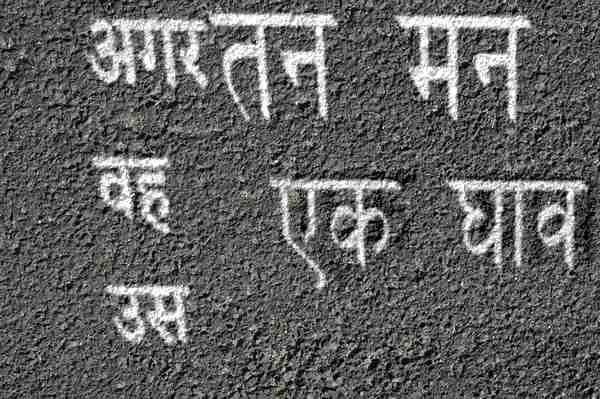 अगर तन मन
वह एक घाव
उस